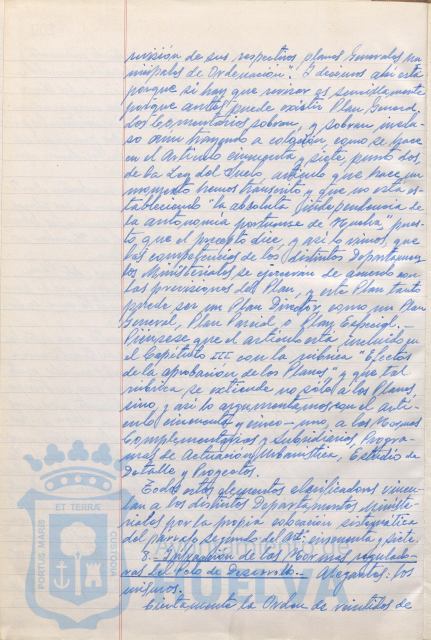 revisión de sus respectivos planes Generales mu
nicipales de Ordenación". Y decimos ahí está
porque si hay que revisar es sencillamente
porque antes puede existir Plan General.
Los comentarios sobran, y sobran, inclu-
so aún trayendo a colación, como se hace
en el Artículo cincuenta y siete, punto dos,
de la Ley del Suelo, artículo que hace un
momento hemos transcrito y que no está es-
tableciendo "la absoluta independencia de
la autonomía portuense de Huelva", pues-
to que el precepto dice, y así lo vimos, que
las competencias de los distintos Departamen-
tos Ministeriales se ejercerán de acuerdo con
las previsiones del Plan, y este Plan tanto
puede ser un Plan Director, como un Plan
General, Plan Parcial o Plan Especial.-
Piénsese que el artículo está incluído en
el Capítulo III con la rúbrica "Efectos
de la aprobación de los Planes" y que tal
rúbrica se extiende no sólo a los Planes,
sino, y así lo argumentamos con el Artí-
culo cincuenta y cinco-uno, a las Normas
Complementarias y Subsidiarias, Progra-
mas de Actuación Urbanística, Estudio de
Detalle y Proyectos.
Todos estos elementos clasificadores vincu-
lan a los distintos Departamentos Ministe-
riales por la propia colocación sistemática
del párrafo segundo del art. cincuenta y siete.
8.- Infracción de las Normas regulado-
ras del Polo de Desarrollo.- Alegantes: los
mismos.
Ciertamente la Orden de veintidos de
PORTUS MARIS
ET TERRAE
CUSTODIA
HUELVA